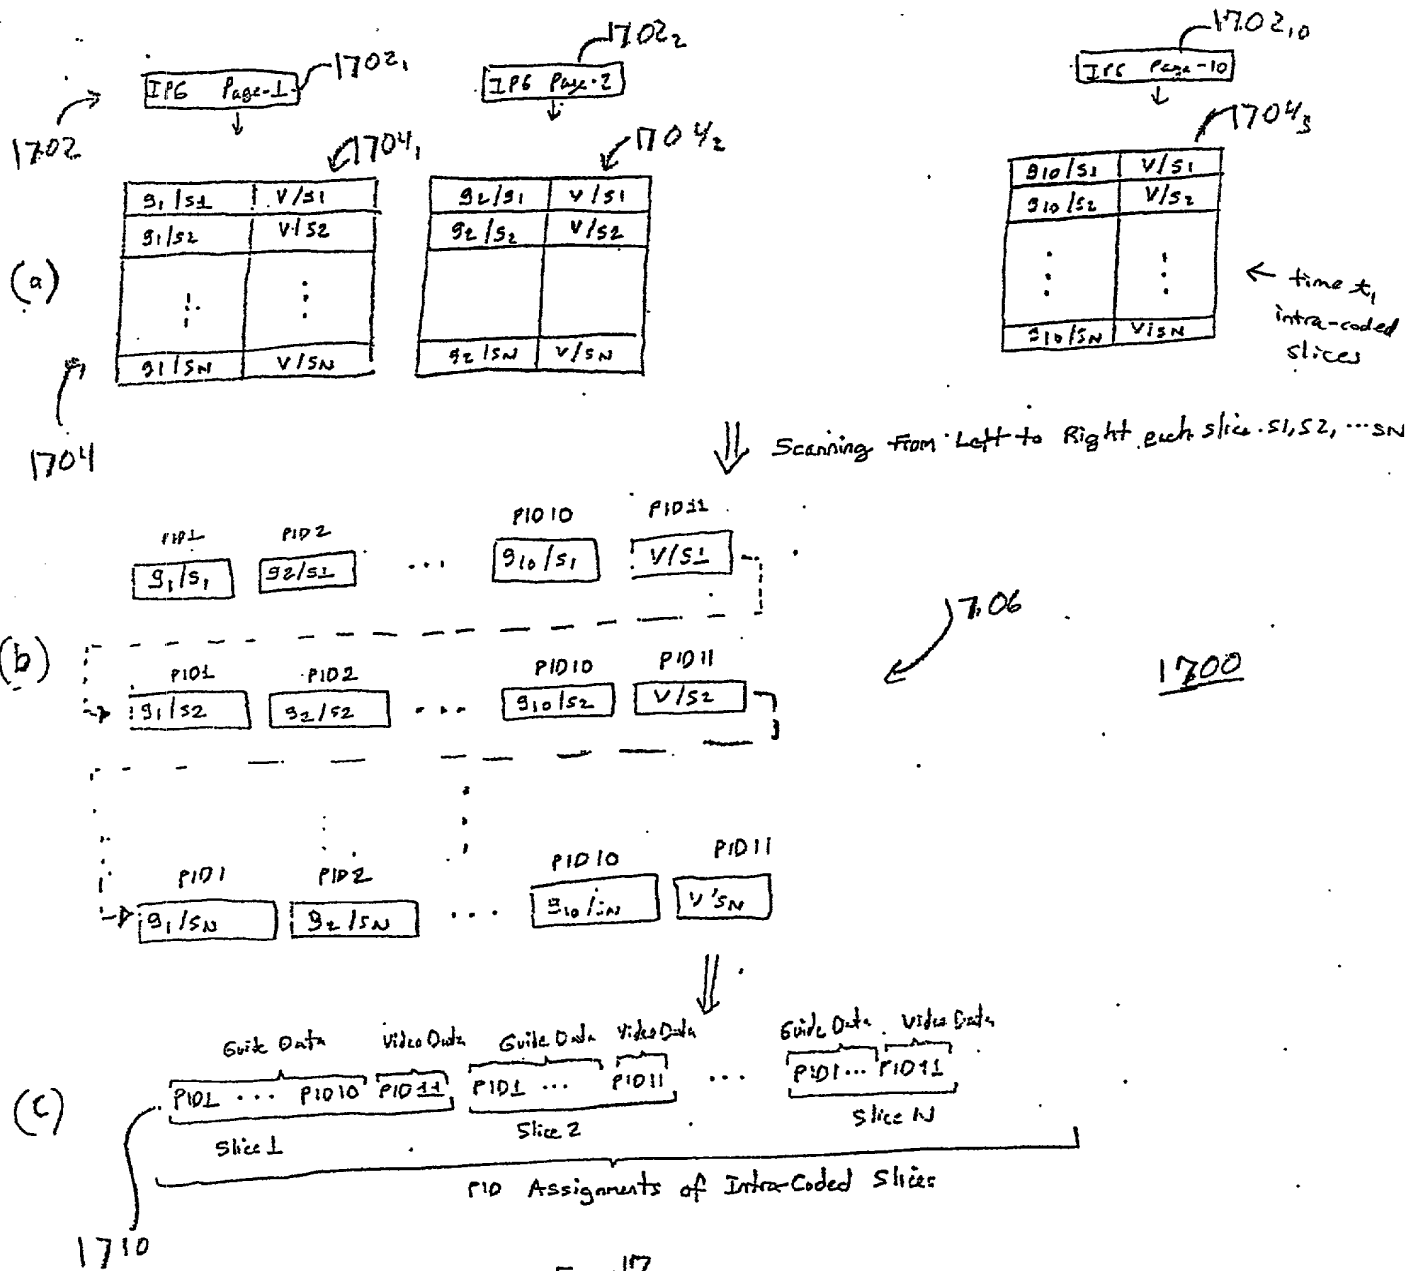 1702₁
1702₂
1702₁₀
IPG Page-1
IPG Page-2
IPG Page-10
1702
1704₁
1704₂
1704₃
g₁/s1 V/s1
g₁/s2 V/s2
g1/sN V/sN
g2/s1 V/s1
g2/s2 V/s2
g2/sN V/sN
g10/s1 V/s1
g10/s2 V/s2
g10/sN V/sN
(a)
← time t₁
intra-coded
slices
1704
Scanning From Left to Right each slice s1, s2, ... sN
PID1 PID2 PID10 PID11
g₁/s₁ g2/s1 ... g10/s₁ V/s1
1706
(b)
PID1 PID2 PID10 PID11
g1/s2 g2/s2 ... g10/s2 V/s2
1700
PID1 PID2 PID10 PID11
g1/sN g2/sN ... g10/sN V/sN
Guide Data Video Data Guide Data Video Data Guide Data Video Data
(c)
PID1 ... PID10 PID11 PID1 ... PID11 ... PID1... PID11
Slice 1 Slice 2 Slice N
PID Assignments of Intra-Coded Slices
1710
17